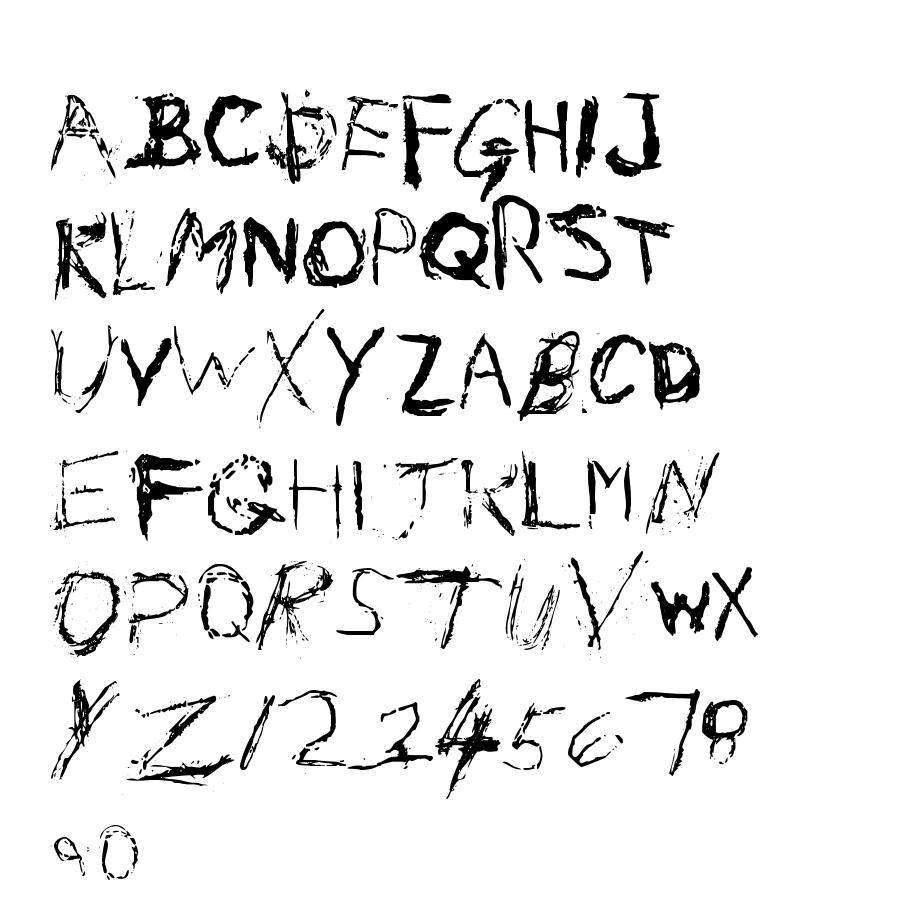 ABCDEFGHIJ
KLMNOPQRST
UVWXYZABCD
EFGHIJKLMN
OPQRSTUVWX
YZ12345678
90